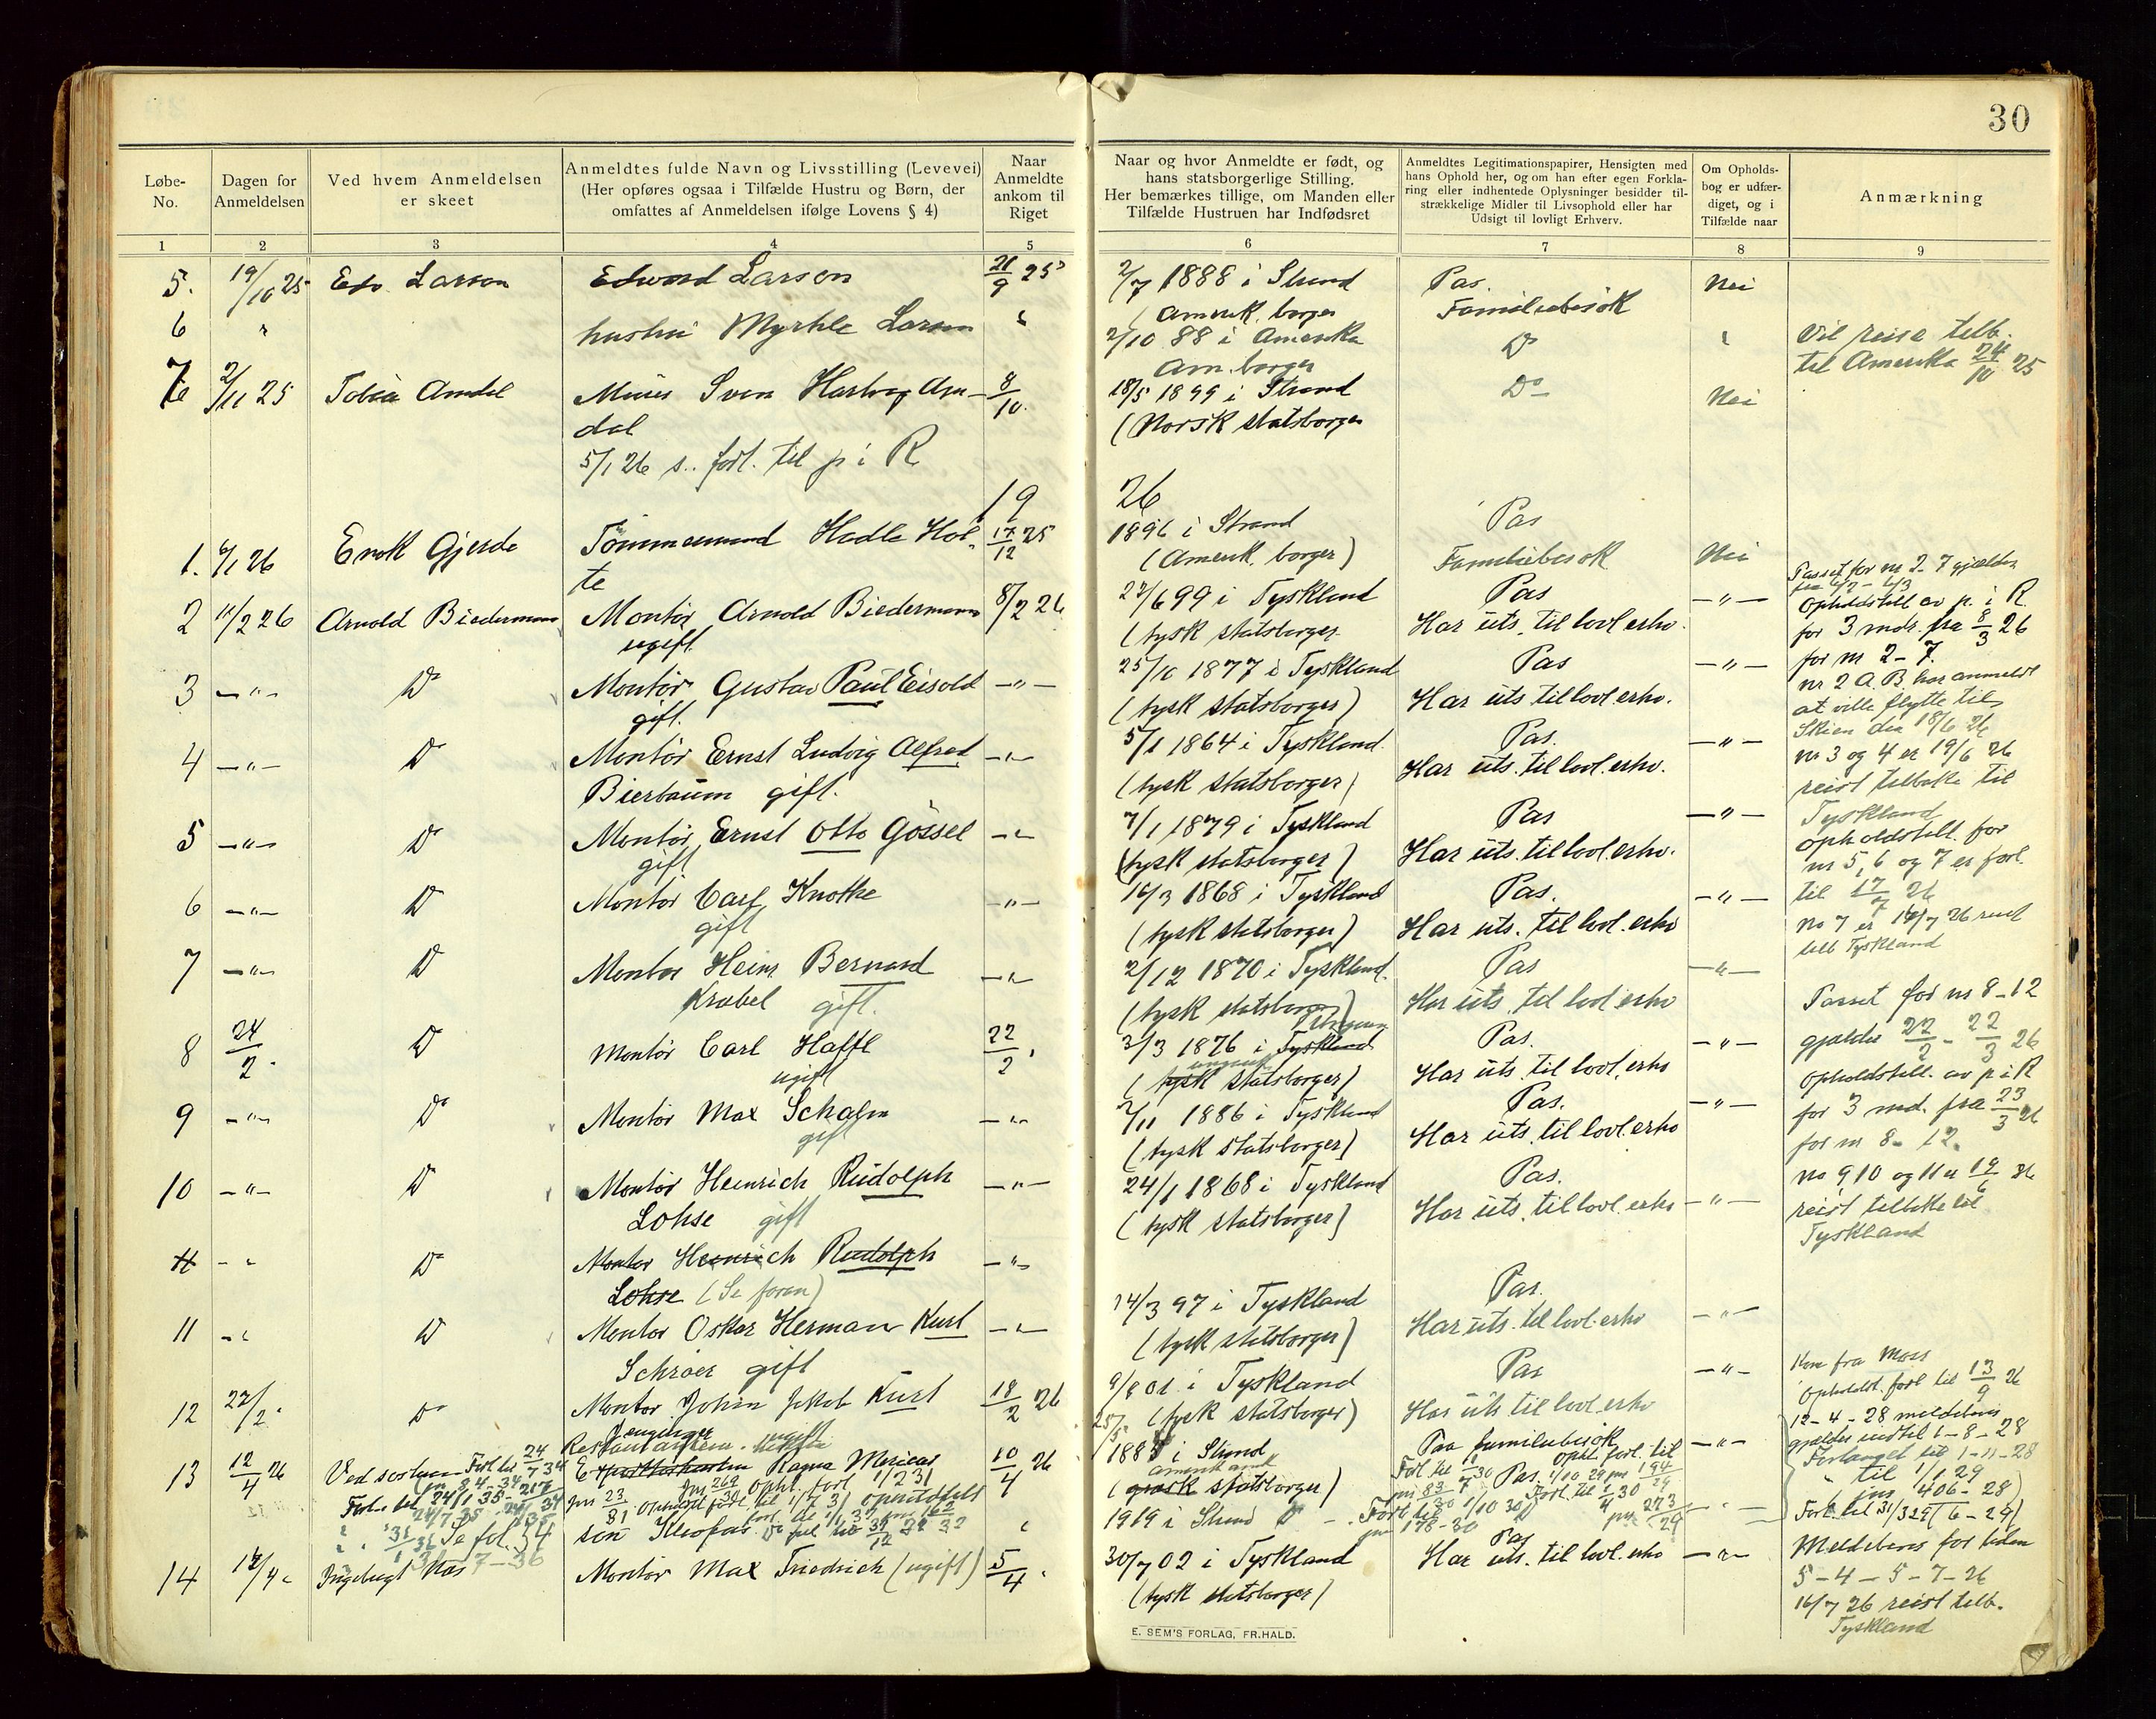 30
Løbe-
No.
Dagen for
Anmeldelsen
Ved hvem Anmeldelsen
er skeet
Anmeldtes fulde Navn og Livsstilling (Levevei)
(Her opføres ogsaa i Tilfælde Hustru og Børn, der
omfattes af Anmeldelsen ifølge Lovens § 4)
Naar
Anmeldte
ankom til
Riget
Naar og hvor Anmeldte er født, og
hans statsborgerlige Stilling.
Her bemærkes tillige, om Manden eller
Tilfælde Hustruen har Indfødsret
Anmeldtes Legitimationspapirer, Hensigten med
hans Ophold her, og om han efter egen Forkla-
ring eller indhentede Oplysninger besidder til-
strækkelige Midler til Livsophold eller har
Udsigt til lovligt Erhverv.
Om Opholds-
bog er udfær-
diget, og i
Tilfælde naar
Anmærkning
1 2 3 4 5 6 7 8 9
5. 19/10 25 Edv Larson Edward Larson 21/9 25 2/7 1888 i Strand Pas. Nei
(Amerik. borger Familiebesøk
6 " hustru Myrhle Larson " 2/10 88 i Amerika Do " Vil reise tilb.
Am. borger til Amerika 24/10 25
7 2/11 25 Tobia Amdal Sven Hartvig Am- 8/10. 18/5 1899 i Strand Do Nei
dal (Norsk statsborger
5/1 26 forl. til p i R
19 26
1. 6/1 26 Enok Gjerde Tømmermand Hadle Hol- 17/12 25 1896 i Strand Pas
te (Amerik. borger) Familiebesøk Nei
2 11/2 26 Arnold Biedermann Montör Arnold Biedermann 8/2 26 27/6 99 i Tyskland Pas —"— Passet for nr 2-7 gjælder
ugift (tysk statsborger. Har uts. til lovl. erhv. Opholdstill av p. i R.
for 3 mdr. fra 8/3 26
3 —"— Do Montör Gustav Paul Eisold —"— 25/10 1877 i Tyskland Pas —"— for nr 2-7.
gift. (tysk statsborger) Har uts til lovl. erhv. nr 2 A.B. har anmeldt
at ville flytte til
4 —"— Do Montör Ernst Ludvig Alfred —"— 5/1 1864 i Tyskland. Pas. —"— Skien den 18/6 26
Bierbaum gift. (tysk statsborger) Har uts. til lovl. erhv. nr 3 og 4 er 19/6 26
reist tilbake til
5 —"— Do Montör Ernst Otto Gössel —"— 7/1 1879 i Tyskland Pas —"— Tyskland
gift (tysk statsborger) Har uts. til lovl. erhv. opholdstill. for
nr 5, 6 og 7 er forl.
6 —"— Do Montör Carl Knothe —"— 16/3 1868 i Tyskland Pas. —"— til 17/7 26
gift (tysk statsborger) Har uts. til lovl. erhv No 7 er 16/7 26 reist
tilb Tyskland
7 —"— Do Montör Heinr Bernard —"— 2/12 1870 i Tyskland. Pas —"—
Krabel gift. (tysk statsborger) Har uts. til lovl. erhv Passet for nr 8-12
8 24/2. Do Montör Carl Haftl 22/2. 3/3 1876 i Tyskland Ungarn Pas. —"— gjælder 22/2 - 22/3 26
ugift (tysk ungarsk statsborger) Har uts. til lovl. erhv Opholdstill. av p i R
9 —"— Do Montör Max Schalm —"— 2/11 1886 i Tyskland Pas. —"— for 3 md. fra 23/3 26
gift (tysk statsborger) Har uts. til lovl. erhv for nr 8-12.
10 —"— Do Montör Heinrich Rudolph —"— 24/1 1868 i Tyskland Pas. —"— no 9 10 og 11 er 19/6 26
Lohse gift (tysk statsborger) Har uts. til lovl. erhv reist tilbake til
Tyskland
11 —"— Do Montor Heinrich Rudolph —"—
Lohse (Se foran)
11 —"— Do Montor Oskar Herman Kurt —"— 14/3 97 i Tyskland Pas. —"—
Schröer gift (tysk statsborger) Har uts. til lovl. erhv
12 22/2. Do Montor Johan Jakob Kurt 18/2 26 9/8 01 i Tyskland Pas —"— Kom fra Moss
ugift (tysk statsborger) Har uts til lovl. erhv Opholdt. forl til 13/9 26
13 12/4 26 Ved søsteren Ragna 10/4 26 188 i Strand Paa familiebesøk —"— 12-4-28 meldebevis
Forl. til 24/7 34 (græsk amerikansk statsborger) Pas. gjælder indtil 1-8-28
Forlænget til 1-11-28
til 1/1 29
(jnr 406-28)
Se fol. 54 søn Kleofas 1919 i Strand Forl. til 31/3 29 (6-29)
14 12/4 Ingebrigt Mas Montör Max Friedrich (ugift) 5/4. 30/7 02 i Tyskland Pas —"— Meldebevis for tiden
(tysk statsborger) Har uts. til lovl. erhv 5-4-5-7-26
16/7 26 reist tilb.
Tyskland
E. SEM'S FORLAG, FR.HALD.